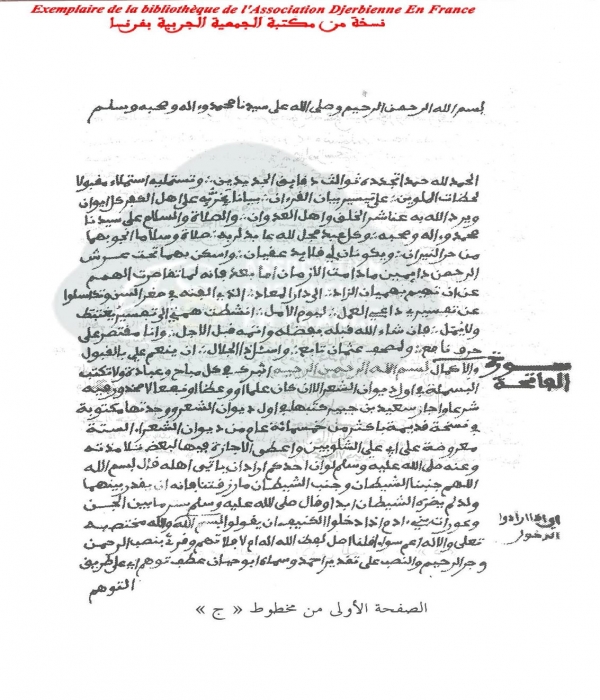 Exemplaire de la bibliothèque de l'Association Djerbienne En France
نسخة من مكتبة الجمعية الجربية بفرنسا
بسم الله الرحمن الرحيم وصلى الله على سيدنا محمد وءاله وصحبه وسلم
الحمد لله حمدا تجدده توالت دقايق الجديدين وتستمليه استملاء مقبولا
لحظات الملوين على تيسير بيان القرءان بيانا على اهل الكفر كل اوان
ويرد الله به عنا شر الخلق واهل العدوان والصلاة والسلام على سيدنا
محمد وءاله وصحبه وكل عبد مجل لله عابد لربه صلاة وسلاما انجو بهما
من حر النيران ويكونان لي قلايد عقيان واسكن بهما تحت عرش
الرحمن دايمين ما دامت الازمان اما بعد فانه لما تقاصرت الهمم
عن ان تهيم بهميان الزاد الى دار المعاد الذي الفته في صغر السن وتكاسلوا
عن تفسير داعي العمل ليوم الامل انشطت همتي الى تفسير يغتبط
ولا يمل فان شاء الله قبله بفضله واتمه قبل الاجل وانا مقتصر على
حرف نافع ولمصحف عثمان تابع واسئل ذا الجلال ان ينعم علي بالقبول
والاكمال بسم الله الرحمن الرحيم في كل مباح وعبادة ولا تكتب
سورة
الفاتحة
البسملة في اول ديوان الشعر الا ان كان علما او وعظا او نفعا لا محذور فيه
شرعا واجاز سعيد بن جبير كتبها في اول ديوان الشعر ووجدتها مكتوبة
في نسخة قديمة باكثر من خمسمائة عام من ديوان الشعراء الستة
معروضة على ابي علي الشلوبين واعطى الاجازة فيها لبعض تلامذته
وعنه صلى الله عليه وسلم لو ان احدكم اراد ان ياتي اهله قال بسم الله
اللهم جنبنا الشيطان وجنب الشيطان ما رزقتنا فانه ان يقدر بينهما
ولد لم يضره الشيطان ابدا وقال صلى الله عليه وسلم ستر ما بين الجن
وعورات بني ءادم اذا دخلوا الكنيف ان يقولوا بسم الله والله مختص به
او اذا ارادوا
الدخول
تعالى والاله اعم سواء قلنا اصل لفظ الله اله او لا وقرئ بنصب الرحمن
وجر الرحيم والنصب على تقدير احمد وسماه ابو حيان عطف توهم اي على طريق
التوهم
الصفحة الأولى من مخطوط « ج »